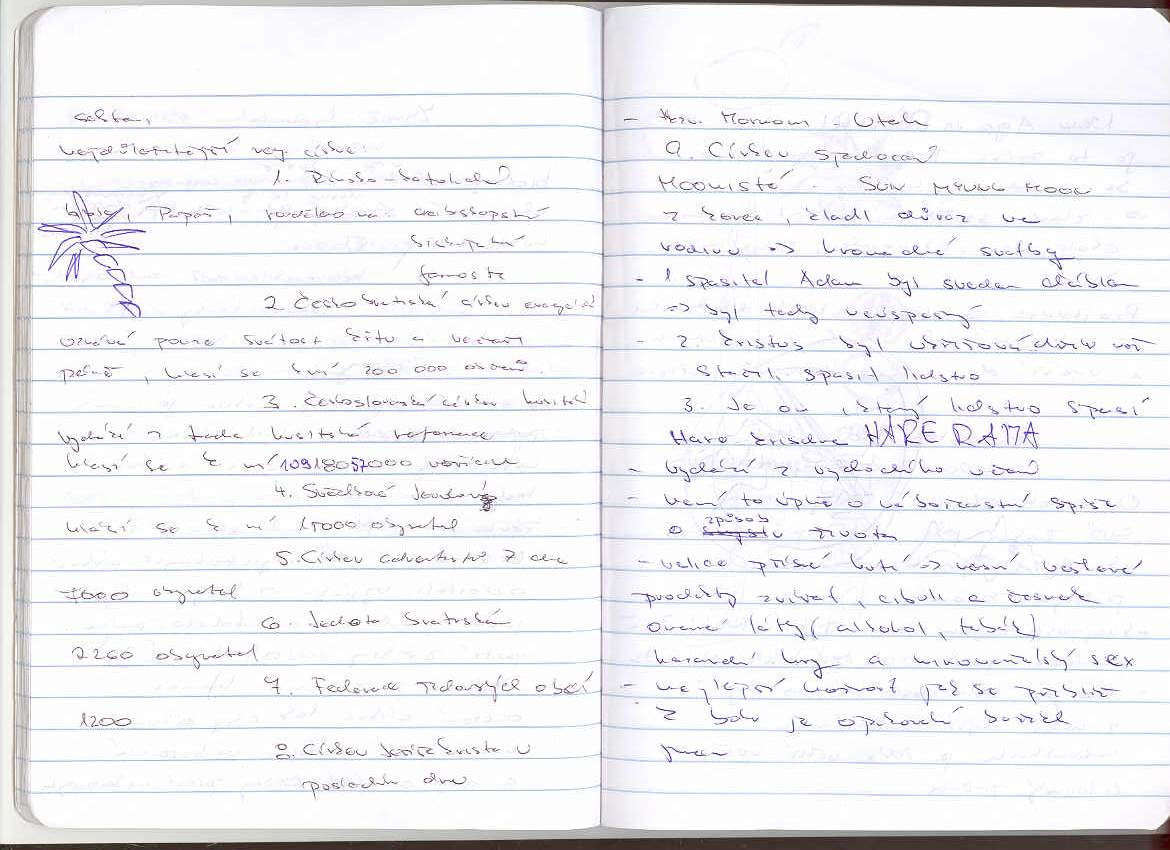 sekta,
nejdůležitější reg. církve:
1. Římsko-katolická
Papež, rozděleno na: arcibiskupství
biskupství
farnosti
2. Českobratrská církev evangelická
uznává pouze svátost křtu a večeři
páně, hlásí se k ní 200 000 občanů.
3. Československá církev husitská
vychází z husitská reformace
hlásí se k ní
4. Svědkové Jehovovi
hlásí se k ní 15000 obyvatel
5. Církev adventistů 7 dne
7000 obyvatel
6. Jednota bratrská
2260 obyvatel
7. Federace židovských obcí
1200
8. Církev Ježíše krista u
posledních dnů
- tzv. Mormoni - Utah
9. Církev sjednocení
Moonisté. SUN MYUNG MOON
z korea, kladl důraz na
rodinu => hromadné svatby
- 1 spasitel Adam byl sveden ďáblem
=> byl tedy neúspěšný
- 2. kristus byl ukřižován dřív než
stačil spasit lidstvo
3. Je on, který lidstvo spasí
Hare krischna HARE RAMA
- vychází z východního učení
- není to úplně o náboženství spíše
o způsob života
- velice přísné => nesmí
produkty zvířat, cibuli a česnek
látky (alkohol, tabák)
hazardní hry a mimomanželský sex
- nejlepší možnost jak se přiblížit
k bohu je opěvování božích
jmen